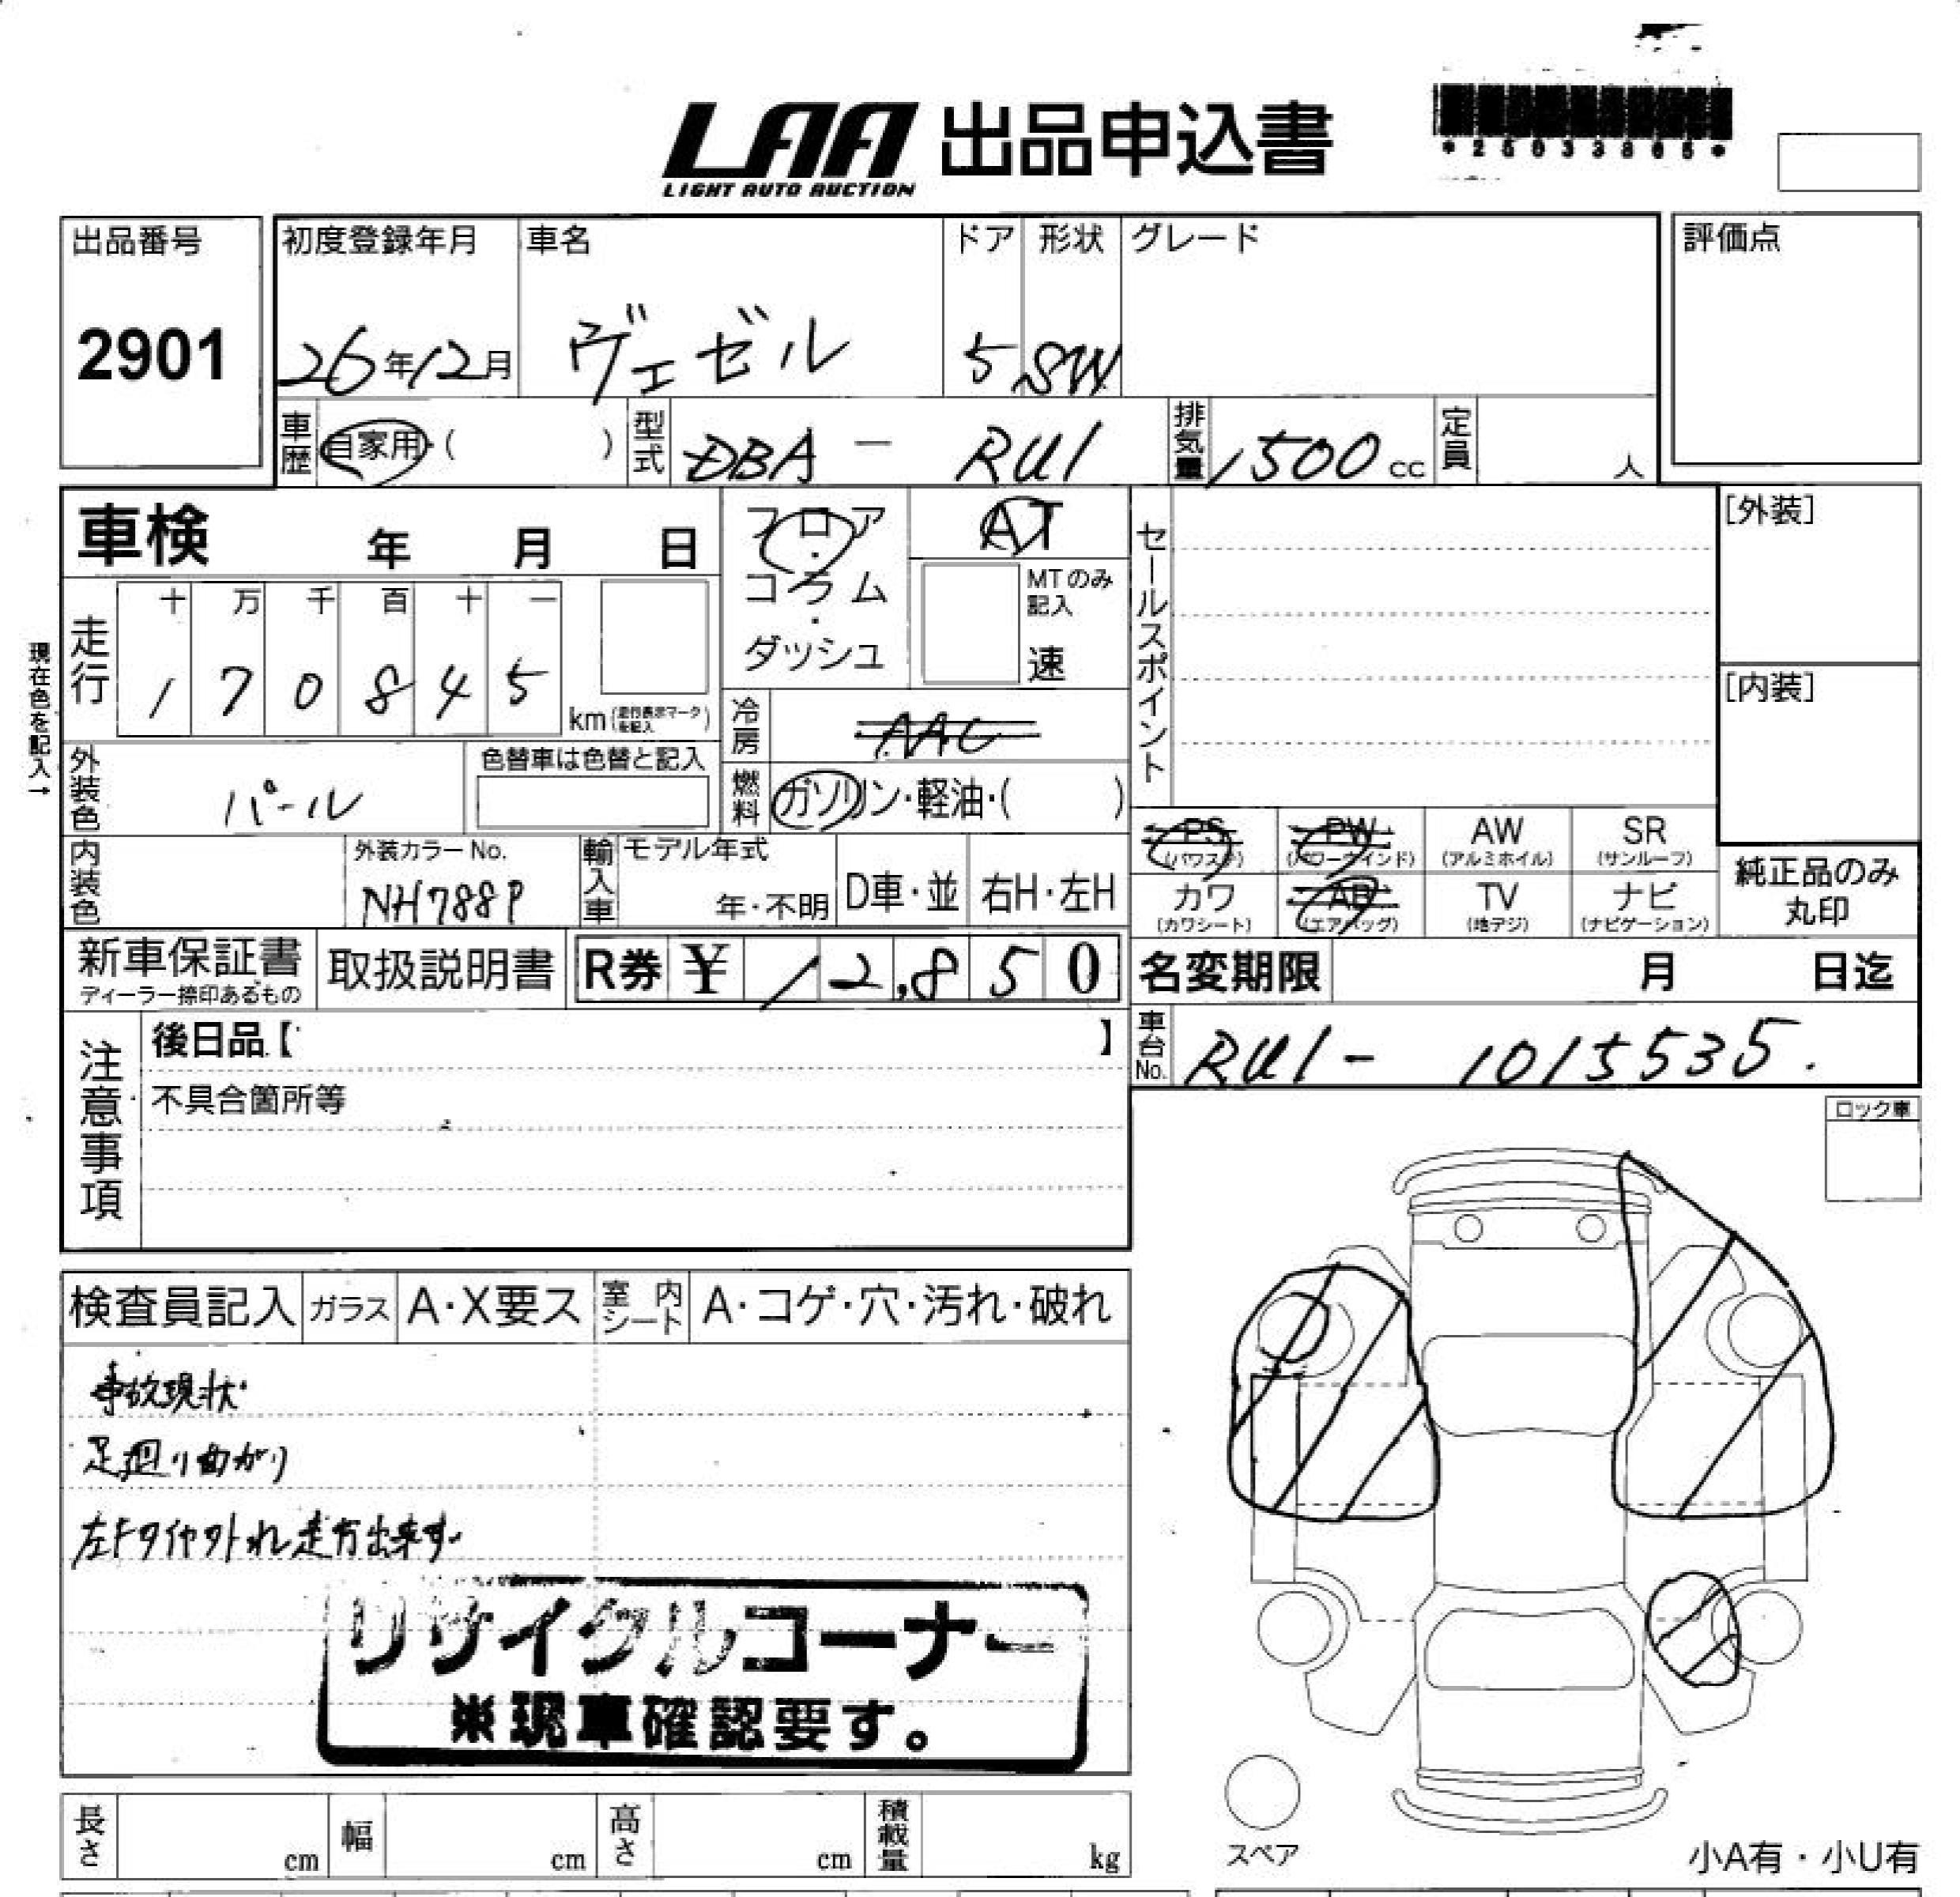 LAA 出品申込書
LIGHT AUTO AUCTION
出品番号
2901
初度登録年月
26年12月
車名
ヴェゼル
ドア
5
形状
SW
グレード
評価点
車歴 自家用・( )
型式 DBA - RU1
排気量 1500cc
定員 人
車検 年 月 日
フロア・コラム・ダッシュ
AT
MTのみ記入
速
セールスポイント
[外装]
[内装]
現在色を記入→
走行
十 万 千 百 十 一
1 7 0 8 4 5 km (走行表示マークを記入)
冷房 AAC
外装色 パール
色替車は色替と記入
燃料 ガソリン・軽油・( )
PS (パワステ)
PW (パワーウインド)
AW (アルミホイル)
SR (サンルーフ)
カワ (カワシート)
AB (エアバッグ)
TV (地デジ)
ナビ (ナビゲーション)
純正品のみ丸印
内装色
外装カラーNo.
NH788P
輸入車
モデル年式
年・不明
D車・並
右H・左H
新車保証書
ディーラー捺印あるもの
取扱説明書
R券 ¥ 12,850
名変期限 月 日迄
車台No. RU1- 1015535.
注意事項
後日品【 】
不具合箇所等
ロック車
検査員記入
ガラス A・X要ス
室内シート A・コゲ・穴・汚れ・破れ
事故現状
足廻り曲がり
左Fタイヤ外れ走行出来ず
リサイクルコーナー
※現車確認要す。
スペア
小A有・小U有
長さ cm
幅 cm
高さ cm
積載量 kg